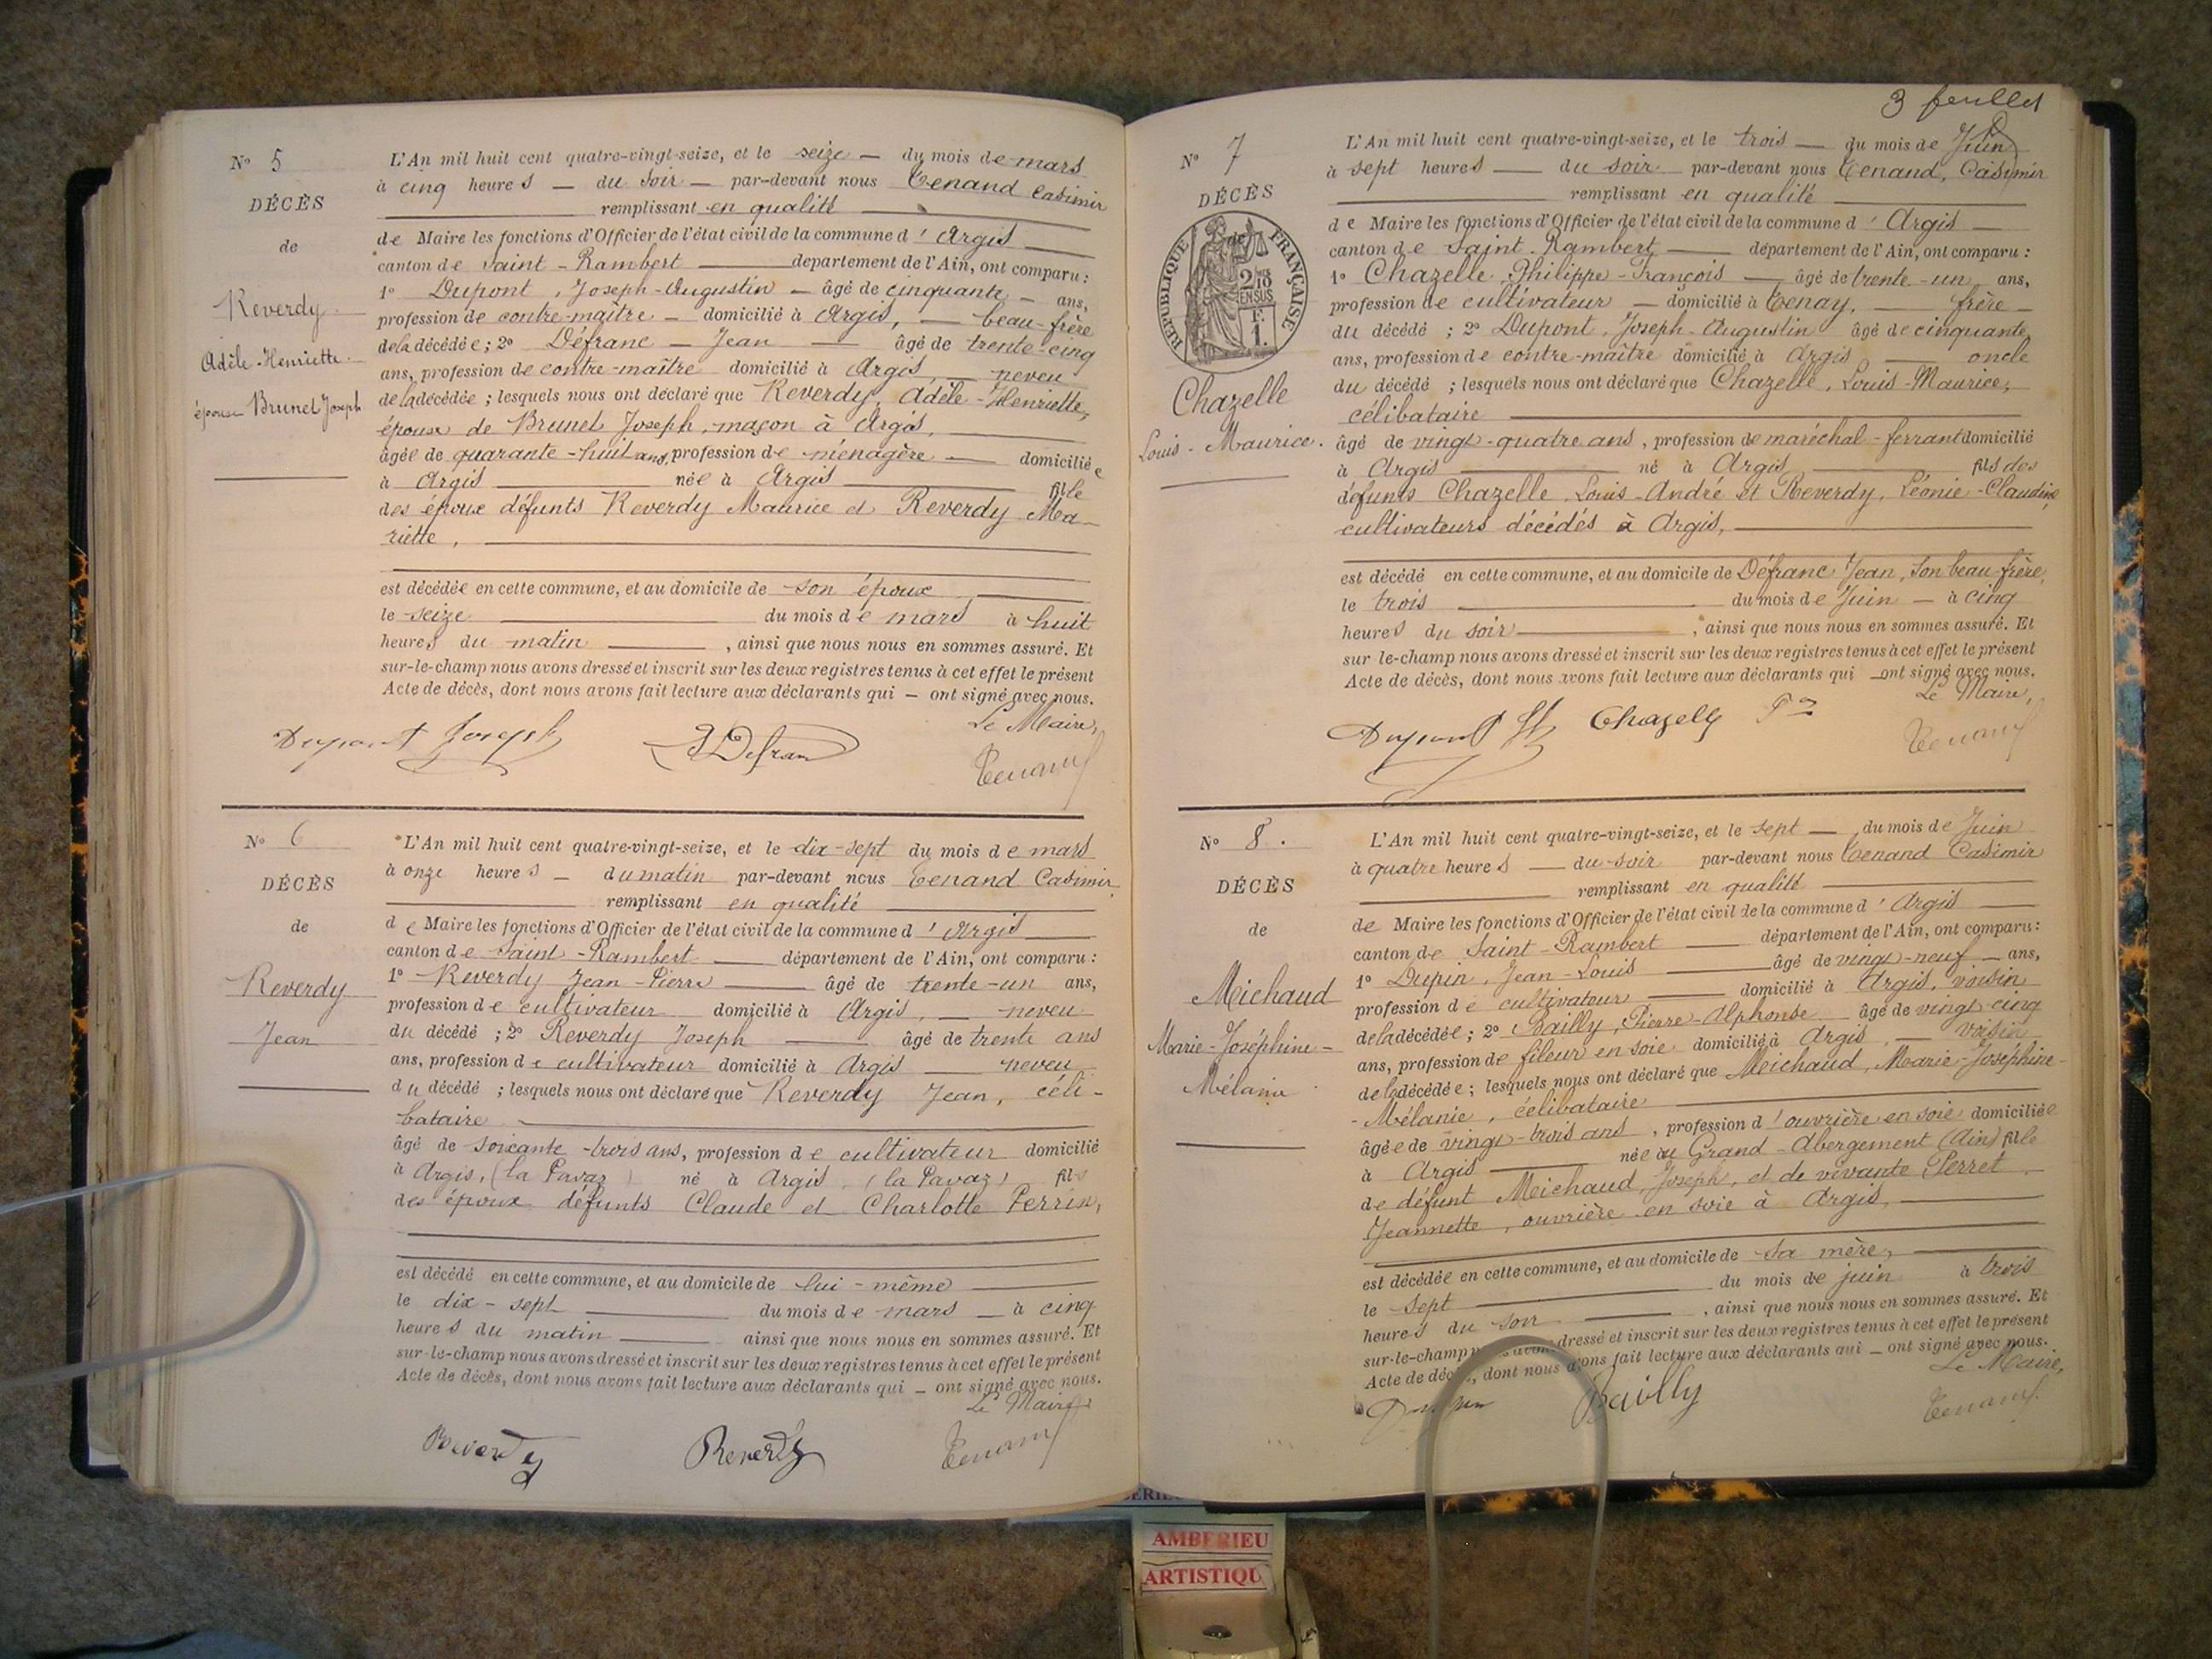 N° 5
DÉCÈS
de
Reverdy
Adèle-Henriette
épouse Brunet Joseph
L'An mil huit cent quatre-vingt-seize, et le seize — du mois de mars
à cinq heures — du soir — par-devant nous Tenand Casimir
remplissant en qualité
de Maire les fonctions d'Officier de l'état civil de la commune d'Argis
canton de Saint-Rambert — département de l'Ain, ont comparu :
1° Dupont, Joseph-Augustin — âgé de cinquante — ans,
profession de contre-maître — domicilié à Argis, — beau-frère
de la décédée ; 2° Défranc — Jean — âgé de trente-cinq
ans, profession de contre-maître domicilié à Argis — neveu
de la décédée ; lesquels nous ont déclaré que Reverdy, Adèle-Henriette,
épouse de Brunet Joseph, maçon à Argis,
âgée de quarante-huit ans, profession de ménagère — domiciliée
à Argis — née à Argis — fille
des époux défunts Reverdy Maurice et Reverdy Ma-
riette,
est décédée en cette commune, et au domicile de son époux
le seize — du mois de mars à huit
heures du matin — , ainsi que nous nous en sommes assuré. Et
sur-le-champ nous avons dressé et inscrit sur les deux registres tenus à cet effet le présent
Acte de décès, dont nous avons fait lecture aux déclarants qui — ont signé avec nous.
Le Maire,
Dupont Joseph JDefranc Tenand
N° 6
DÉCÈS
de
Reverdy
Jean
L'An mil huit cent quatre-vingt-seize, et le dix-sept du mois de mars
à onze heures — du matin par-devant nous Tenand Casimir
remplissant en qualité
de Maire les fonctions d'Officier de l'état civil de la commune d'Argis
canton de Saint-Rambert — département de l'Ain, ont comparu :
1° Reverdy Jean-Pierre — âgé de trente-un ans,
profession de cultivateur domicilié à Argis, — neveu
du décédé ; 2° Reverdy Joseph — âgé de trente ans
ans, profession de cultivateur domicilié à Argis — neveu
du décédé ; lesquels nous ont déclaré que Reverdy Jean, céli-
bataire
âgé de soixante-trois ans, profession de cultivateur domicilié
à Argis, (la Pavaz) né à Argis, (la Pavaz) fils
des époux défunts Claude et Charlotte Perrin,
est décédé en cette commune, et au domicile de lui-même
le dix-sept — du mois de mars — à cinq
heures du matin — ainsi que nous nous en sommes assuré. Et
sur-le-champ nous avons dressé et inscrit sur les deux registres tenus à cet effet le présent
Acte de décès, dont nous avons fait lecture aux déclarants qui — ont signé avec nous.
Le Maire
Reverdy Reverdy Tenand
3 feuillet
N° 7
DÉCÈS
de
RÉPUBLIQUE FRANÇAISE
2/10 EN SUS
F.
1.
Chazelle
Louis-Maurice.
L'An mil huit cent quatre-vingt-seize, et le trois — du mois de Juin
à sept heures — du soir par-devant nous Tenand, Casimir
remplissant en qualité
de Maire les fonctions d'Officier de l'état civil de la commune d'Argis —
canton de Saint-Rambert — département de l'Ain, ont comparu :
1° Chazelle, Philippe-François — âgé de trente-un ans,
profession de cultivateur — domicilié à Tenay, — frère
du décédé ; 2° Dupont, Joseph-Augustin âgé de cinquante
ans, profession de contre-maître domicilié à Argis — oncle
du décédé ; lesquels nous ont déclaré que Chazelle, Louis-Maurice,
célibataire
âgé de vingt-quatre ans, profession de maréchal-ferrant domicilié
à Argis — né à Argis — fils des
défunts Chazelle, Louis-André et Reverdy, Léonie-Claudine,
cultivateurs décédés à Argis,
est décédé en cette commune, et au domicile de Défranc Jean, son beau-frère,
le trois — du mois de Juin — à cinq
heures du soir — , ainsi que nous nous en sommes assuré. Et
sur-le-champ nous avons dressé et inscrit sur les deux registres tenus à cet effet le présent
Acte de décès, dont nous avons fait lecture aux déclarants qui — ont signé avec nous.
Le Maire,
Dupont Chazelle Tenand
N° 8.
DÉCÈS
de
Michaud
Marie-Joséphine-
Mélanie
L'An mil huit cent quatre-vingt-seize, et le sept — du mois de Juin
à quatre heures — du soir par-devant nous Tenand Casimir
remplissant en qualité
de Maire les fonctions d'Officier de l'état civil de la commune d'Argis
canton de Saint-Rambert — département de l'Ain, ont comparu :
1° Dupin, Jean-Louis — âgé de vingt-neuf — ans,
profession de cultivateur — domicilié à Argis, voisin
de la décédée ; 2° Bailly, Pierre-Alphonse âgé de vingt cinq
ans, profession de fileur en soie domicilié à Argis, — voisin
de la décédée ; lesquels nous ont déclaré que Meichaud, Marie-Joséphine-
-Mélanie, célibataire
âgée de vingt-trois ans, profession d'ouvrière en soie domiciliée
à Argis — née au Grand-Abergement (Ain) fille
de défunt Meichaud, Joseph, et de vivante Perret
Jeannette, ouvrière en soie à Argis,
est décédée en cette commune, et au domicile de sa mère,
le sept — du mois de juin à trois
heures du soir — , ainsi que nous nous en sommes assuré. Et
sur-le-champ dressé et inscrit sur les deux registres tenus à cet effet le présent
Acte de décès, dont nous avons fait lecture aux déclarants qui — ont signé avec nous.
Le Maire,
Bailly Tenand
AMBERIEU
ARTISTIQU